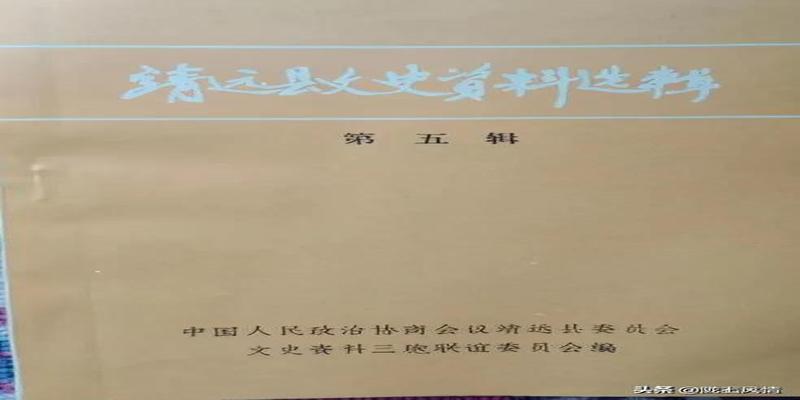 靖远县文史资料选辑
第五辑
中国人民政治协商会议靖远县委员会
文史资料三胞联谊委员会编
头条 @陇士风情